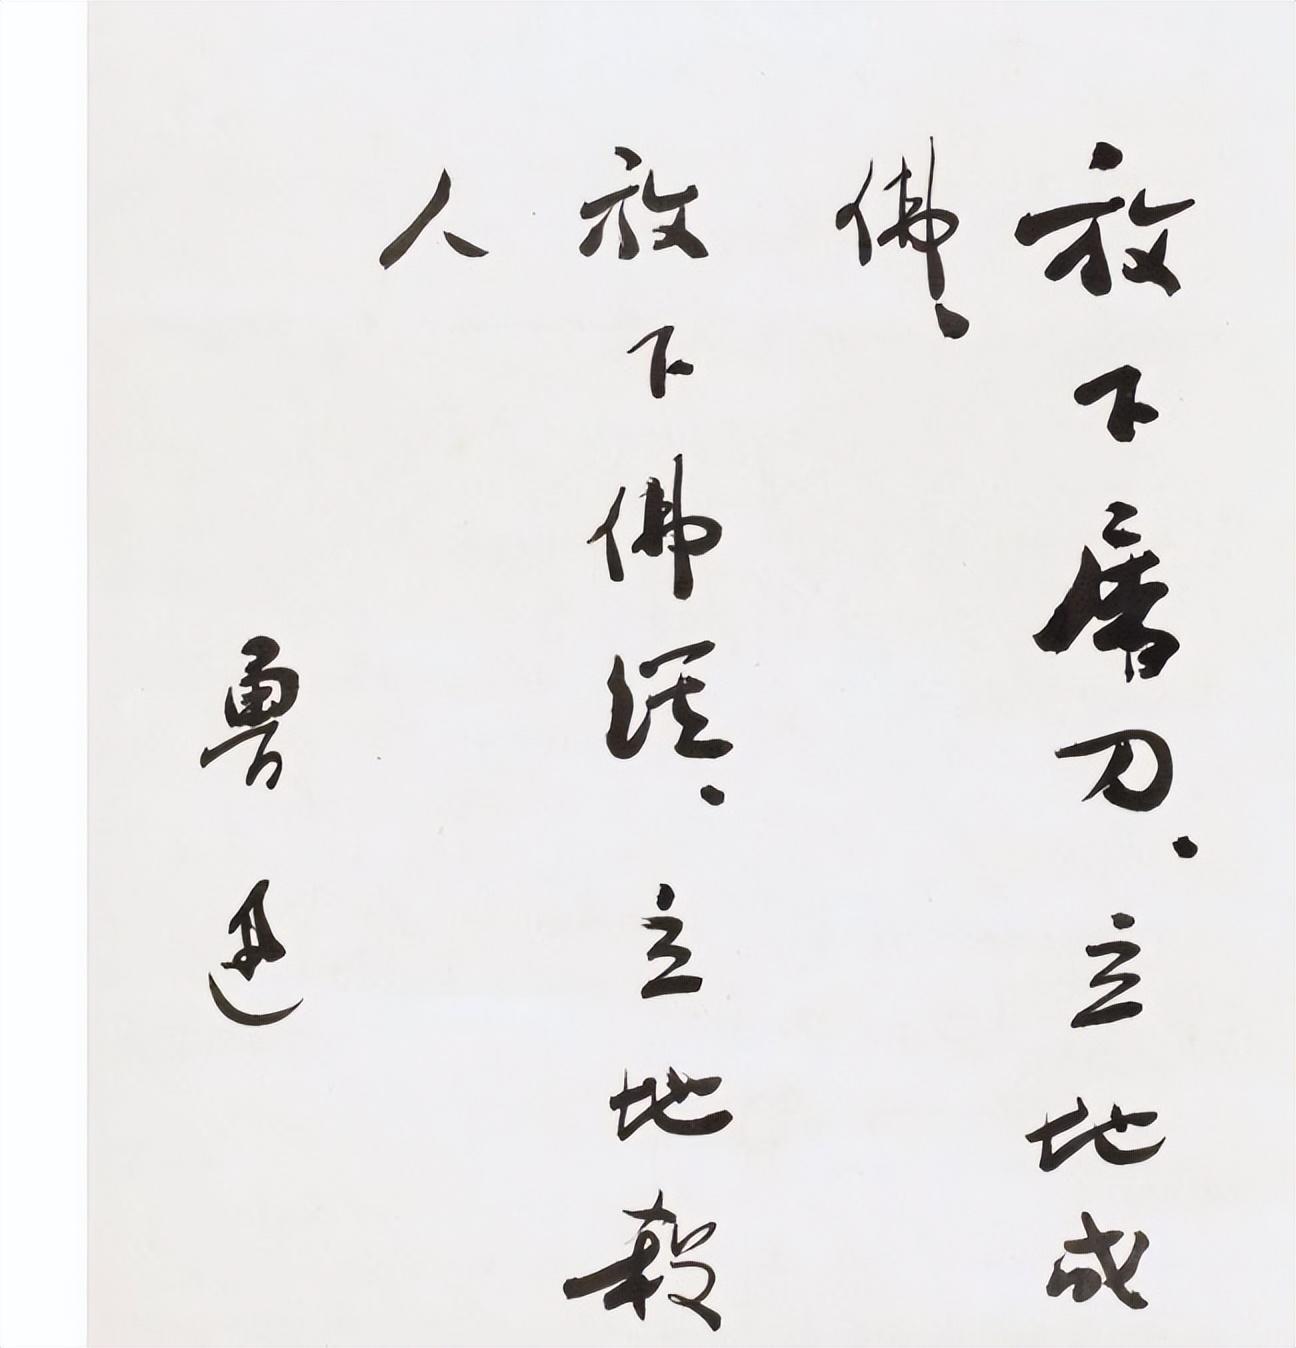 放下屠刀.立地成
佛.
放下佛經.立地殺
人
魯迅